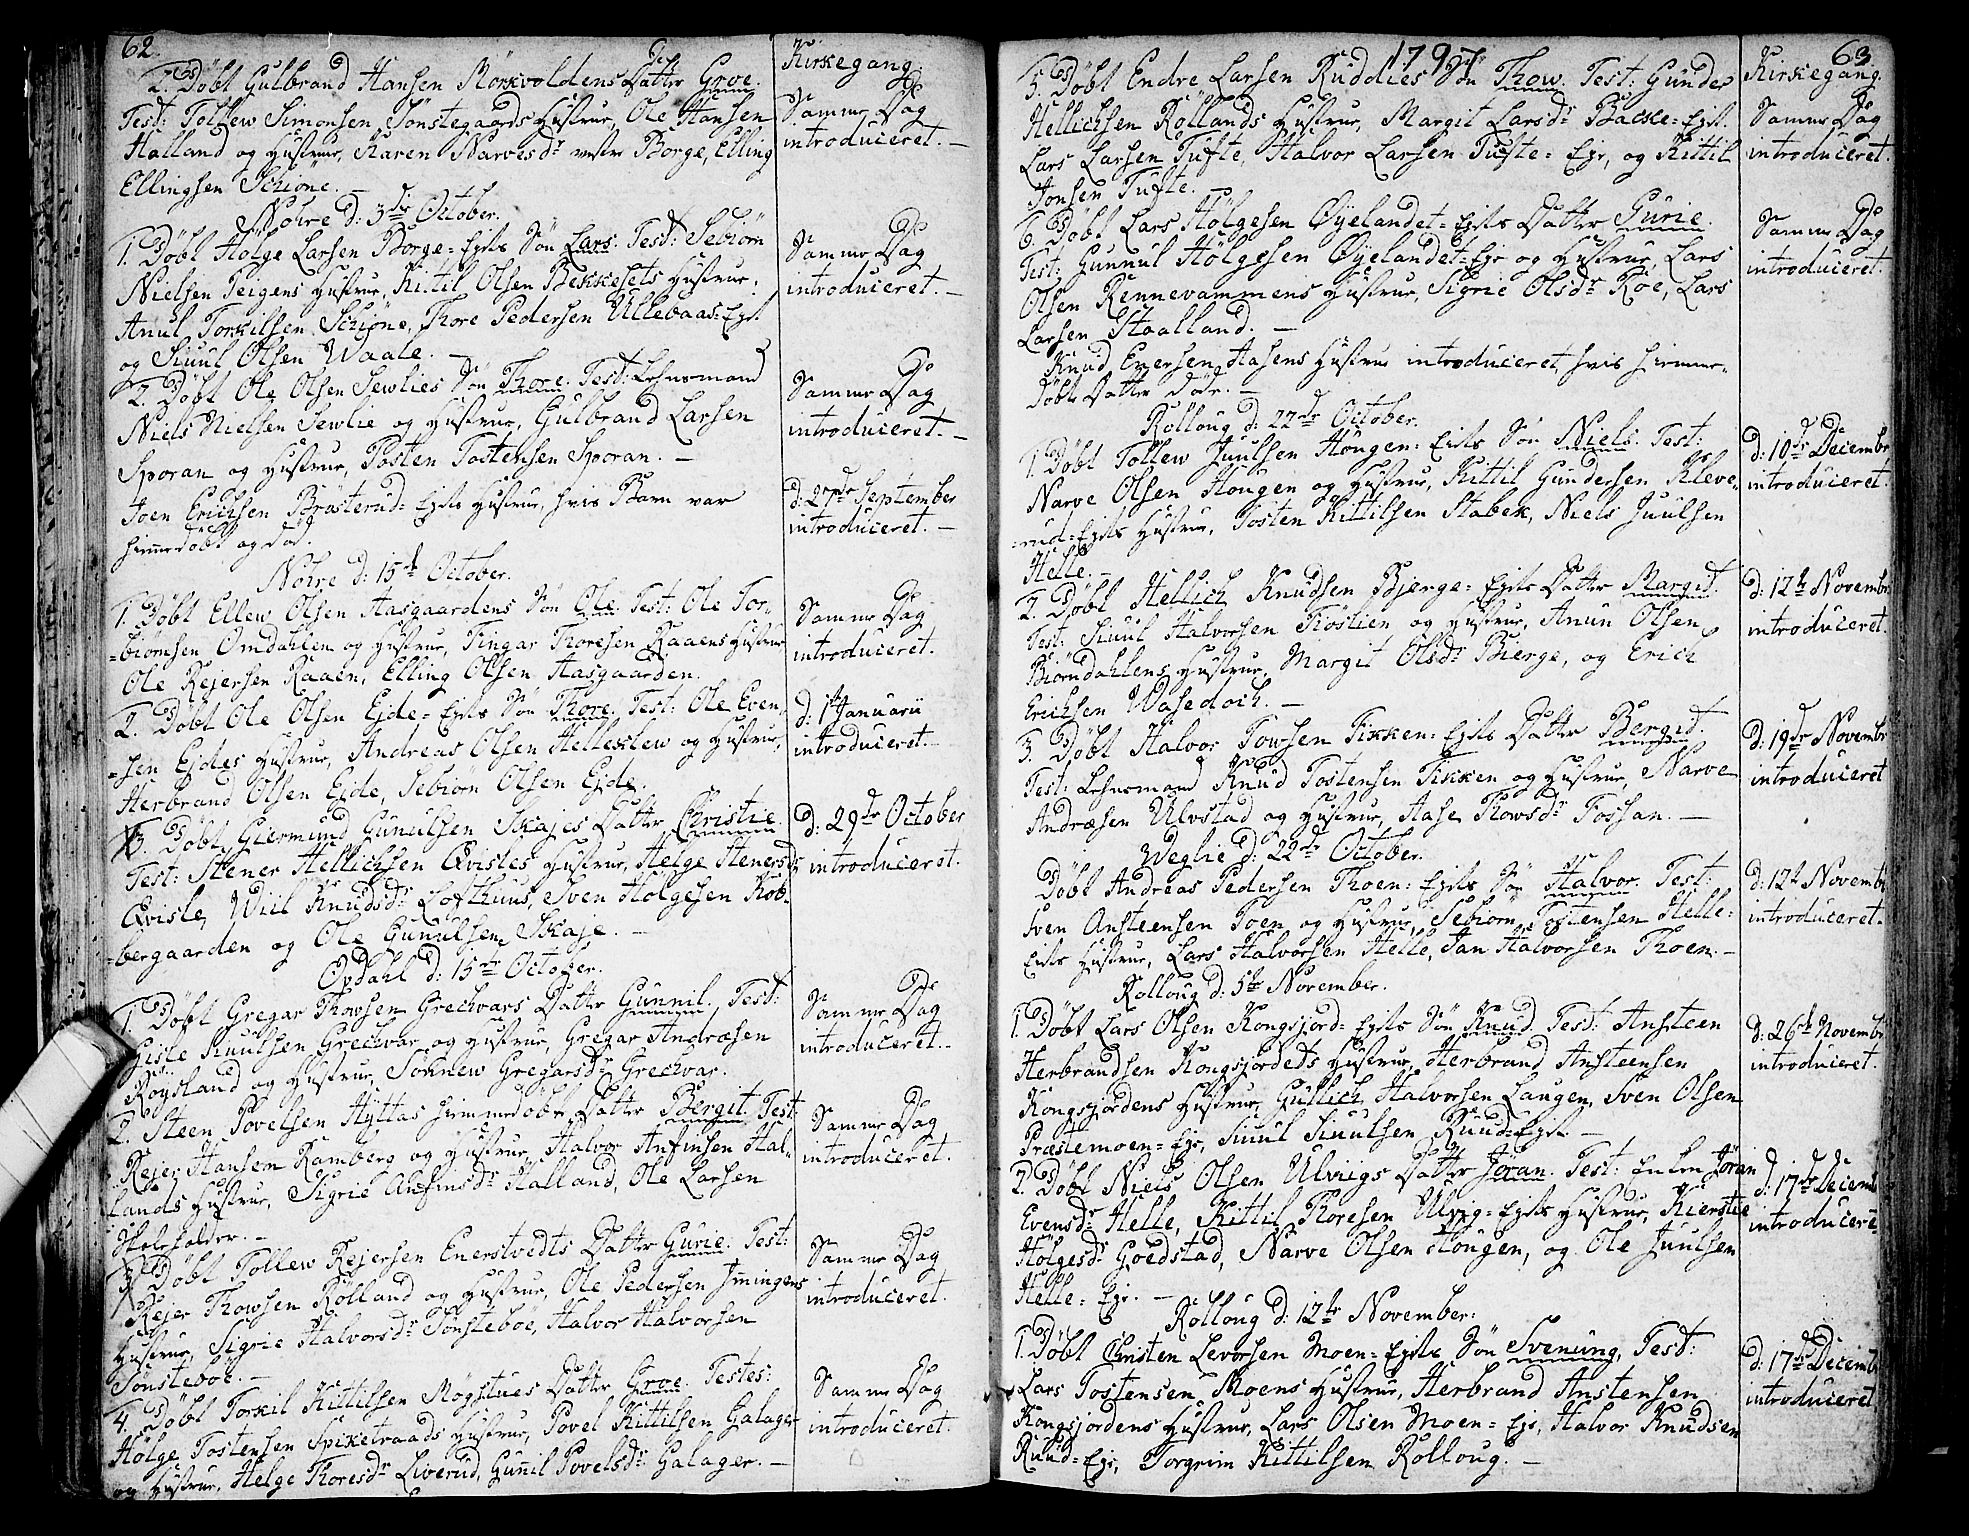 62.
Kirkegang.
2. Döbt Gulbrand Hansen Mörkvoldens Datter Groe.
Test: Tollew Simonsen Tönstegaards Hustrue, Ole Hansen
Halland og Hustrue, Karen Narvesdr Borge, Elling
Ellingsen Schiöne. —
Samme Dag
introduceret. —
Nohre d: 3de October.
1. Döbt Hölge Larsen Borge-Ejets Sön Lars. Test: Sebiörn
Nielsen Teigens Hustrue, Kittil Olsen Bekkesets Hustrue,
Anul Torkilsen Schiöne, Thore Pedersen Ullebaas-Ejet
og Siuul Olsen Waale. —
Samme Dag
introduceret. —
2. Döbt Ole Olsen Sewlies Sön Thore. Test: Lehnsmand
Niels Nielsen Sewlie og Hustrue, Gulbrand Larsen
Sporan og Hustrue, Tosten Tostensen Sporan. —
Samme Dag
introduceret. —
Joen Erichsen Brösterud-Ejets Hustrue, hvis Barn var
hiemmedöbt og död.
d: 27de September
introduceret. —
Nohre d: 15de October.
1. Döbt Ellew Olsen Aasgaardens Sön Ole. Test: Ole Tor-
-biörnsen Omdahlen og Hustrue, Fingar Thoresen Raaens Hustrue
Ole Rejersen Raaen, Elling Olsen Aasgaarden.
Samme Dag
introduceret.
2. Döbt Ole Olsen Ejde-Ejets Sön Thore. Test: Ole Even-
-sen Ejdes Hustrue, Andreas Olsen Helleklew og Hustrue,
Herbrand Olsen Ejde, Sebiörn Olsen Ejde.
d: 1te Januarii
introduceret. —
3. Döbt Giermund Gunulsen Skajes Datter Christie.
Test: Stener Hellichsen Qvisles Hustrue, Helge Stenersdr
Qvisle, Wiil Knudsdr Lofthuus, Sven Hölgesen Kob-
-bergaarden og Ole Gunulsen Skaje. —
d: 29de October
introduceret.
Opdahl d: 15de October.
1. Döbt Gregar Thowsen Grechvars Datter Gunnil. Test:
Giste Knulsen Grechvar og Hustrue, Gregar Andræsen
Roysland og Hustrue, Sönnew Gregarsdr Grechvar.
Samme Dag
introduceret.
2. Steen Povelsen Hyttas hiemmedöbt Datter Bergit. Test:
Rejer Hansen Ramberg og Hustrue, Halvor Anfinsen Hal-
lands Hustrue, Sigrie Anfinsdr Halland, Ole Larsen
Skoleholder. —
Samme Dag
introduceret.
3. Döbt Tollew Rejersen Enerstvedts Datter Gurie. Test:
Rejer Thowsen Rölland og Hustrue, Ole Pedersen Imingens
Hustrue, Sigrie Halvorsdr Tönsteböe, Halvor Halvorsen
Tönsteböe. —
Samme Dag
introduceret.
4. Döbt Torkil Kittilsen Mögstues Datter Groe. Testes:
Hölge Tostensen Spiketraads Hustrue, Povel Kittilsen Galager
og Hustrue, Helge Thoresdr Liverud, Gunil Povelsdr Galager. —
Samme Dag
introduceret.
1797
63.
Kirkegang.
5. Döbt Endre Larsen Ruddies Sön Thow. Test: Gunder
Hellichsen Röllands Hustrue, Margit Larsdr Bakke-Ejet.
Lars Larsen Tufte, Halvor Larsen Tufte-Eje, og Kittil
Jonsen Tufte.
Samme Dag
introduceret.
6. Döbt Lars Hölgesen Öyelandet-Ejets Datter Gurie.
Test: Gunnul Hölgesen Öyelandet-Eje og Hustrue, Lars
Olsen Rennevammens Hustrue, Sigrie Olsdr Röe, Lars
Larsen Staalland. —
Samme Dag
introduceret.
Knud Enersen Aasens Hustrue introduceret, hvis hiemme-
döbte Datter döde. —
Rolloug d: 22de October.
1. Döbt Tollew Juulsen Hougen-Ejets Sön Niels. Test:
Narve Olsen Hougen og Hustrue, Kittil Gundersen Kleve-
-rud-Ejets Hustrue, Tosten Kittilsen Stabek, Niels Juulsen
Helle. —
d: 10de Decembr
introduceret.
2. Döbt Hellich Knudsen Bjerge-Ejets Datter Margit.
Test: Siuul Halvorsen Traaen og Hustrue, Anun Olsen
Biörndahlens Hustrue, Margit Olsdr Bierge, og Erich
Erichsen Wasedoch. —
d: 12te Novembr
introduceret.
3. Döbt Halvor Towsen Fikken-Ejets Datter Bergit.
Test: Lehnsmand Knud Tostensen Fikken og Hustrue, Narve
Andræsen Ulvstad og Hustrue, Aase Thowsdr Fossan. —
d: 19de Novembr
introduceret
Weglie d: 22de October.
Döbt Andreas Pedersen Thoen-Ejets Sön Halvor. Test:
Sven Ansteensen Toen og Hustrue, Sebiörn Tostensen Helle-
Ejets Hustrue, Lars Halvorsen Helle, Jan Halvorsen Thoen. —
d: 12te Novembr
introduceret.
Rolloug d: 5te November.
1. Döbt Lars Olsen Kongsjord-Ejets Sön Knud. Test: Ansteen
Herbrandsen Kongsjordets Hustrue, Herbrand Ansteensen
Kongsjordens Hustrue, Gullich Halvorsen Laugen, Sven Olsen
Præstemoen-Eje, Siuul Siuulsen Ruud-Ejet. —
d: 26de Novembr
introduceret.
2. Döbt Niels Olsen Ulviigs Datter Joran. Test: Enken Jöran
Evensdr Helle, Kittil Thoresen Ulvig-Ejets Hustrue, Kierstie
Hölgesdr Goedstad, Narve Olsen Hougen, og Ole Juulsen
Helle-Eje. —
d: 17de Decemb
introduceret
Rolloug d: 12te November.
1. Döbt Christen Levorsen Moen-Ejets Sön Svenung. Test:
Lars Tostensen Moens Hustrue, Herbrand Anstensen
Kongsjordens Hustrue, Lars Olsen Moen-Eje, Halvor Knudsen
Ruud-Eje, Torgrim Kittilsen Rolloug. —
d: 17de Decemb
introduceret